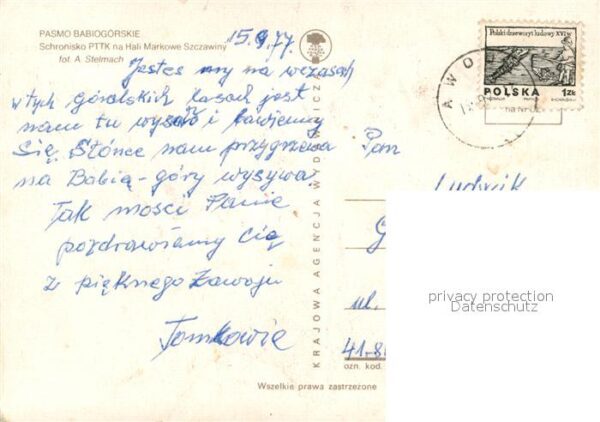 PASMO BABIOGÓRSKIE
Schronisko PTTK na Hali Markowe Szczawiny
fot. A. Stelmach
15.9.77
Jesteśmy na wczasach
w tych góralskich lasach jest
nam tu wysoko i bawiemy
się. Słońce nam przygrzewa
na Babią-górę wysywa
Tak mości Panie
pozdrawiamy Cię
z pięknego Zawoju
Tomkowie
KRAJOWA AGENCJA WYDAWNICZA
Wszelkie prawa zastrzeżone
Polski drzeworyt ludowy XVI w
POLSKA 1 ZŁ
AWO
Pan
Ludwik
G
ul.
41-8
ozn. kod.
privacy protection
Datenschutz